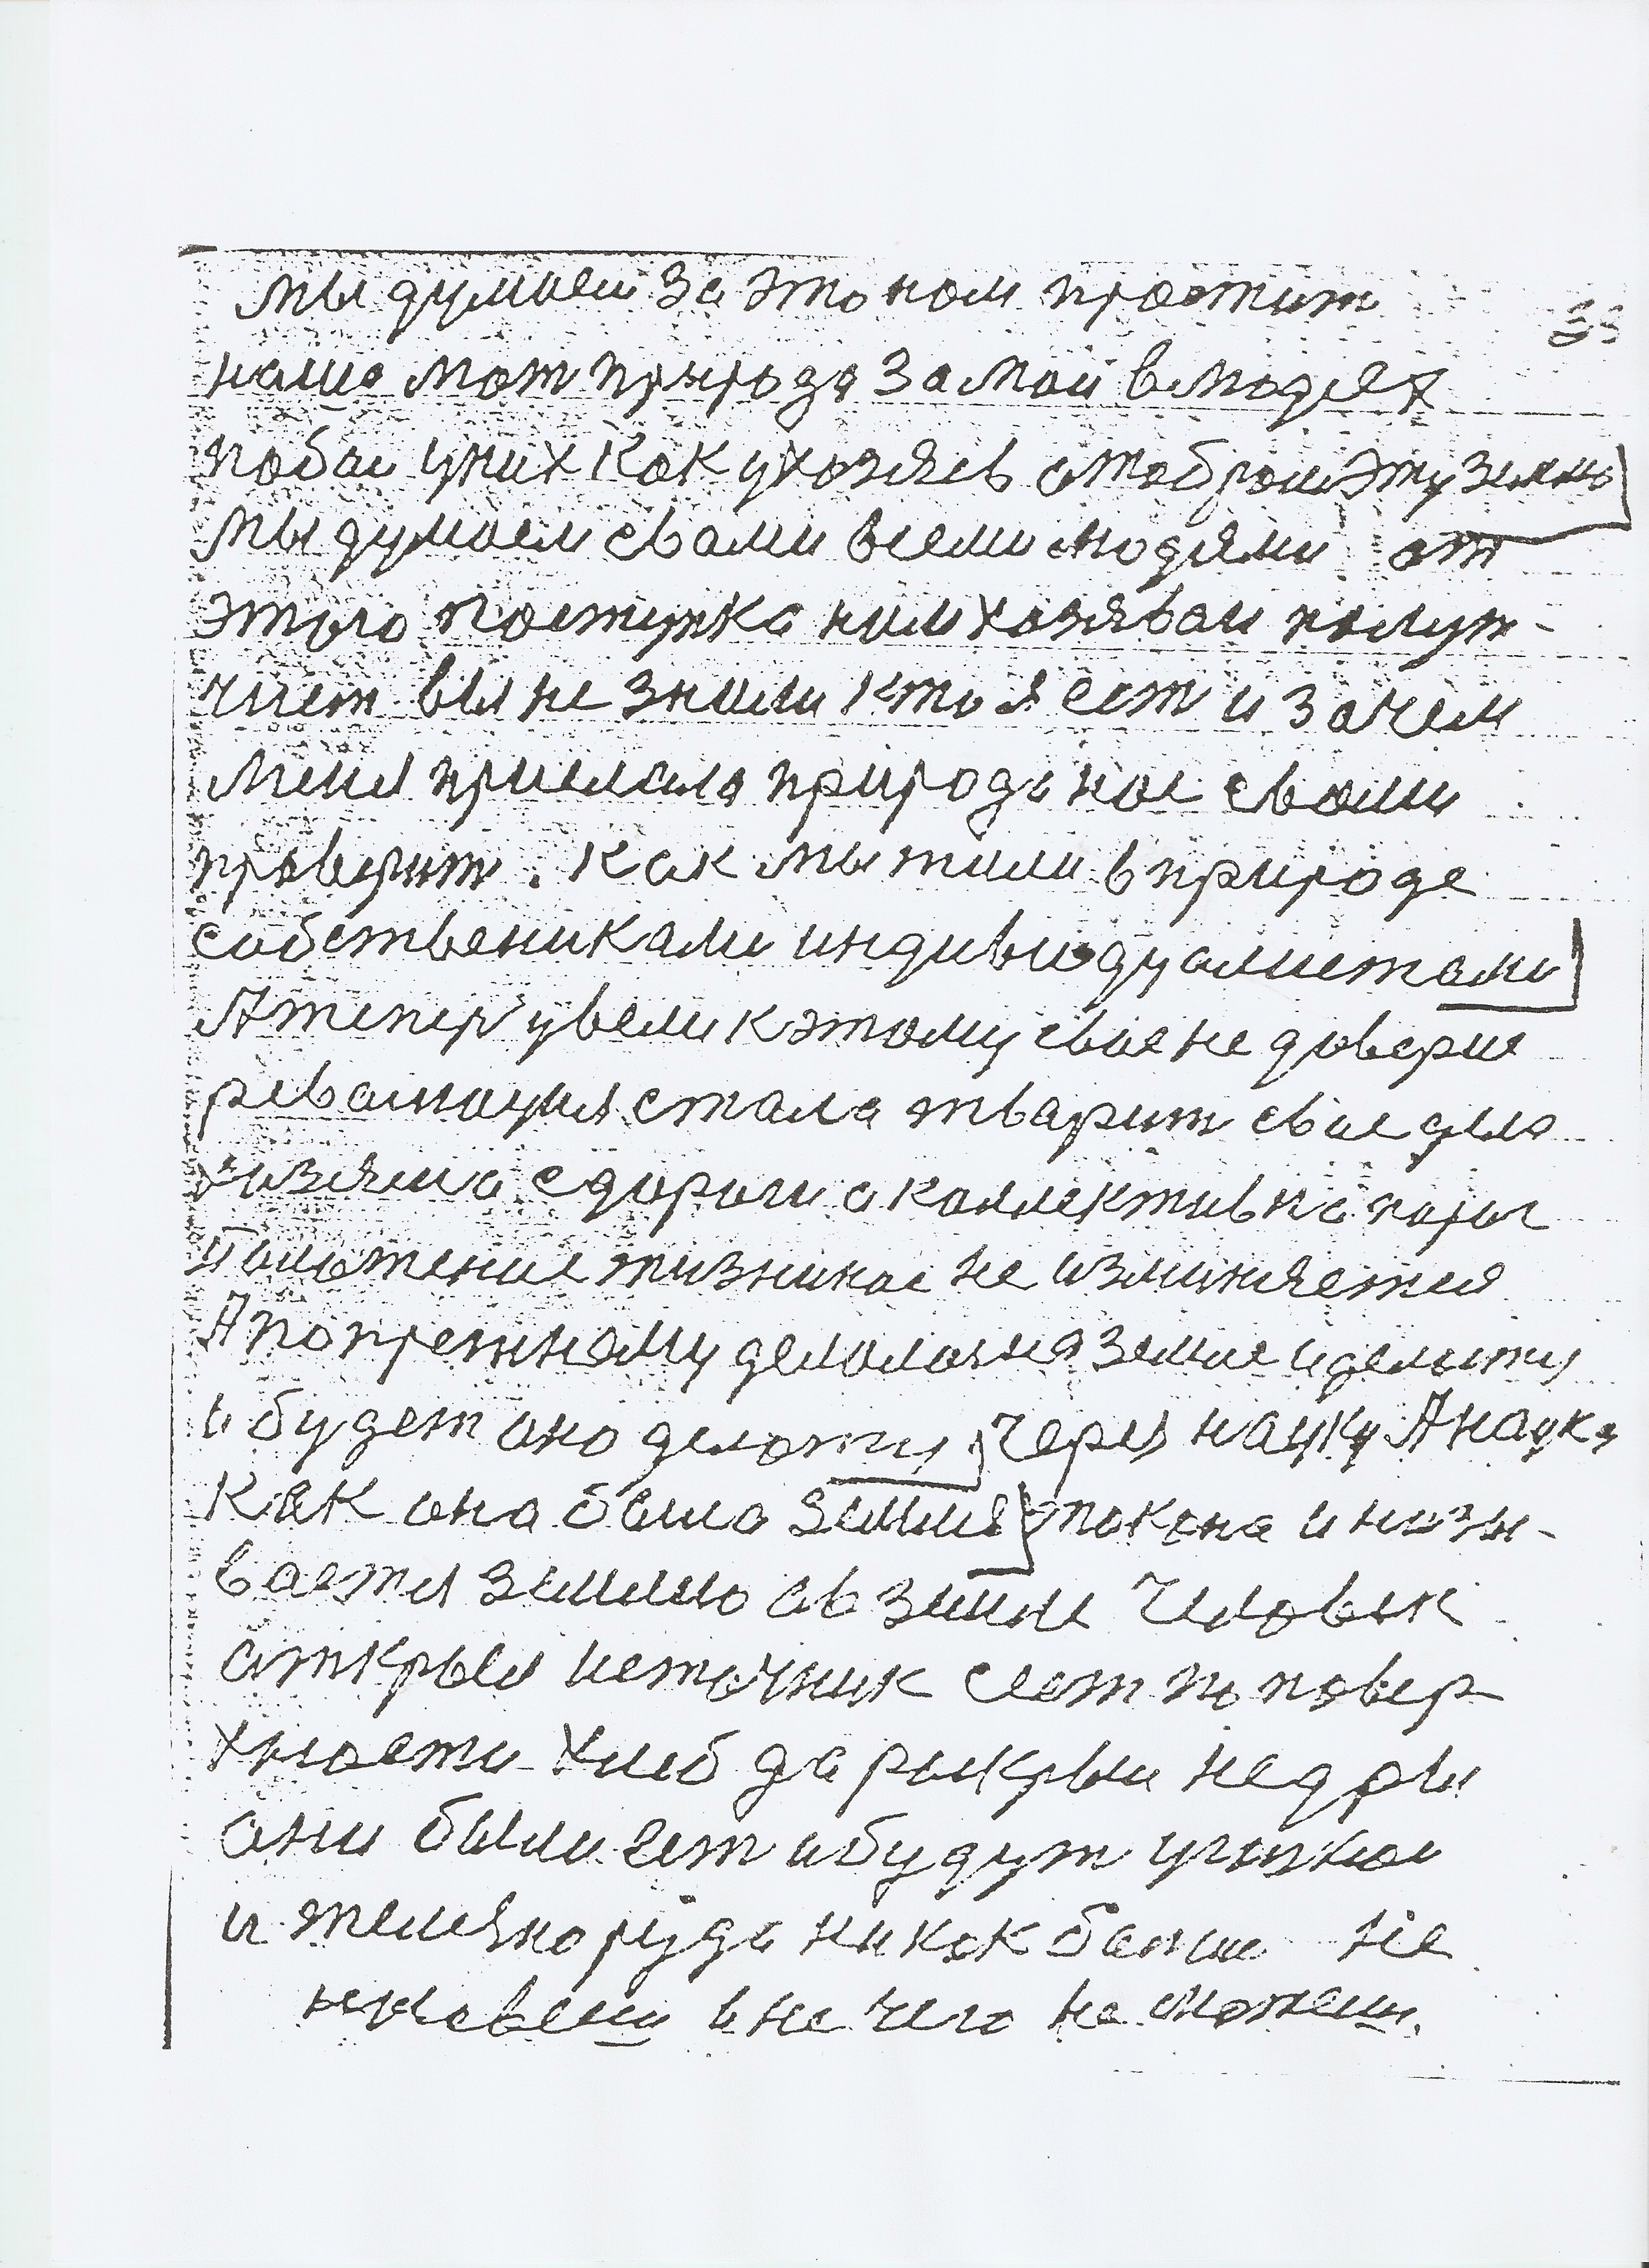 мы думаем за это нам простит
33
наша мат природа за мой в людях
побои у них как у хозяев отоброт эту землю
мы думаем с вами всеми людями от
этого поступка ним хозявам получ-
чиет вы не знали кто я ест и зачем
меня прислала природа нас с вами
проверит. как мы жили в природе
собствениками индивидуалистами
А тепер увели к этому свое не довериe
революция стала тварит свое дело
хозяина с дороги а коллектив на порог
Положение жизни нас не изминяется
А по прежнему делалас на земле и делоту
и будет оно делоту через науку А наука
как она была земля покона и назы-
вается землю а в земле Чиловек
аткрыл источник сеет по повер
хности хлиб да рыскрыл недры
они были ест и будут уголкой
и желязно руда никак батш не
перевеш и не чего не можеш.